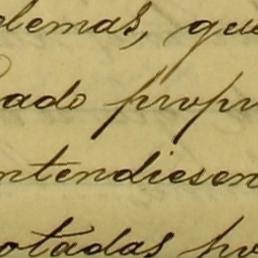 demas, que
ado propi
ntendiesen
otadas po